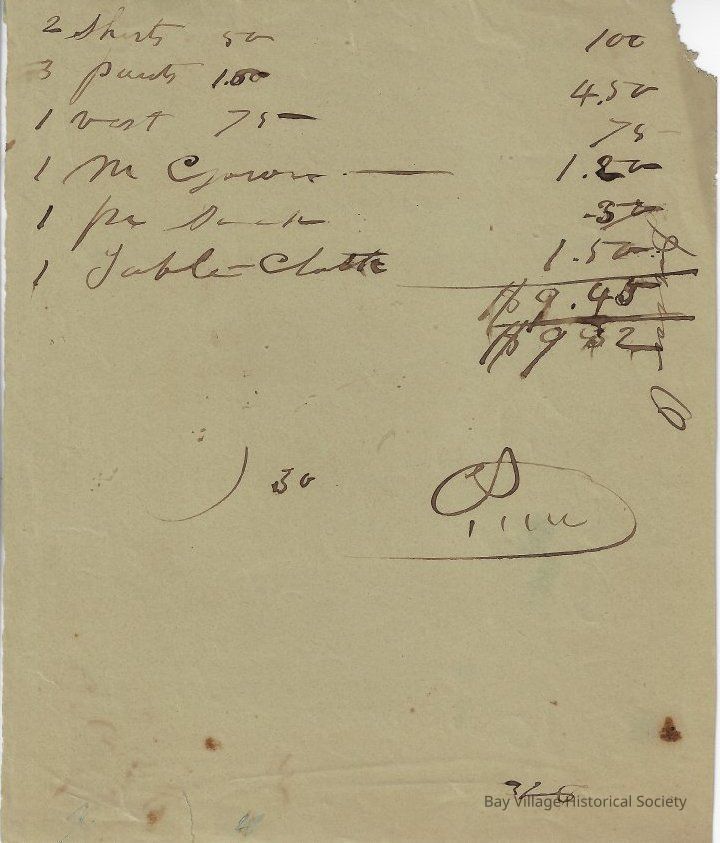 2 Shirts 50 100
3 pants 1.50 4.50
1 vest 75 75
1 M Gown 1.20
1 pr 50
1 Table-Cloth 1.50
$ 9.45
$ 9 32
30
Bay Village Historical Society